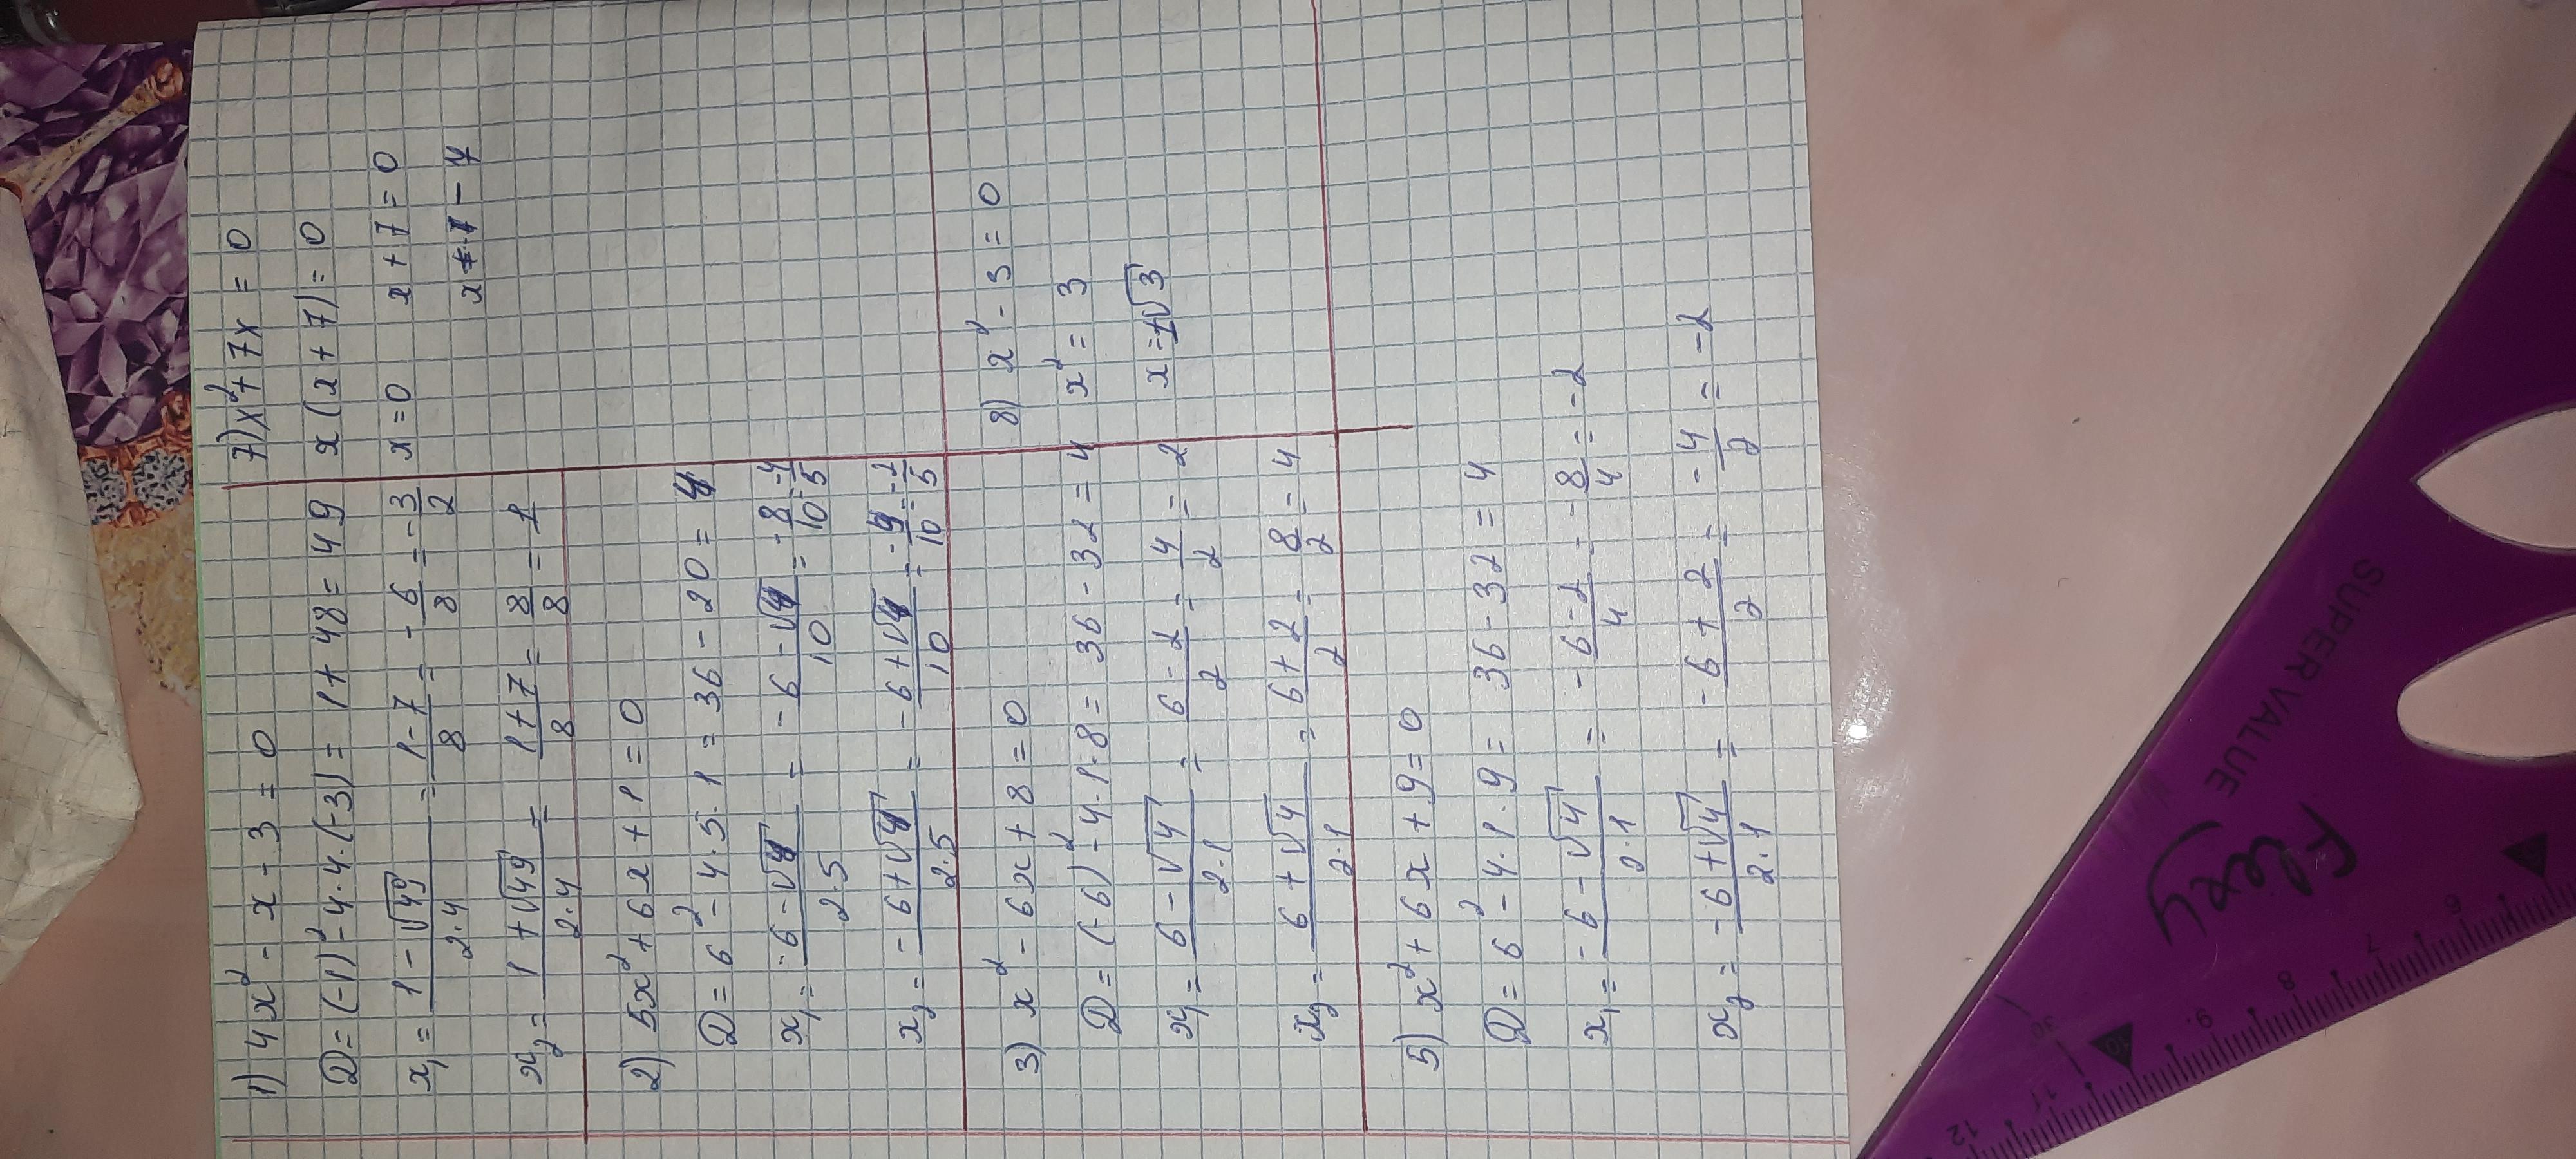 1) 4x² - x - 3 = 0
D = (-1)² - 4·4·(-3) = 1 + 48 = 49
x₁ = (1 - √49)/(2·4) = (1 - 7)/8 = -6/8 = -3/2
x₂ = (1 + √49)/(2·4) = (1 + 7)/8 = 8/8 = 1
2) 5x² + 6x + 1 = 0
D = 6² - 4·5·1 = 36 - 20 = 4
x₁ = (-6 - √4)/(2·5) = (-6 - √4)/10 = -8/10 = -4/5
x₂ = (-6 + √4)/(2·5) = (-6 + √4)/10 = -4/10 = -2/5
3) x² - 6x + 8 = 0
D = (-6)² - 4·1·8 = 36 - 32 = 4
x₁ = (6 - √4)/(2·1) = (6 - 2)/2 = 4/2 = 2
x₂ = (6 + √4)/(2·1) = (6 + 2)/2 = 8/2 = 4
5) x² + 6x + 9 = 0
D = 6² - 4·1·9 = 36 - 32 = 4
x₁ = (-6 - √4)/(2·1) = (-6 - 2)/4 = -8/4 = -2
x₂ = (-6 + √4)/(2·1) = (-6 + 2)/2 = -4/2 = -2
7) x² + 7x = 0
x(x + 7) = 0
x = 0 x + 7 = 0
x = -7
8) x² - 3 = 0
x² = 3
x = ±√3
Flexy
SUPER VALUE
6 7 8 9 10 11 12
30